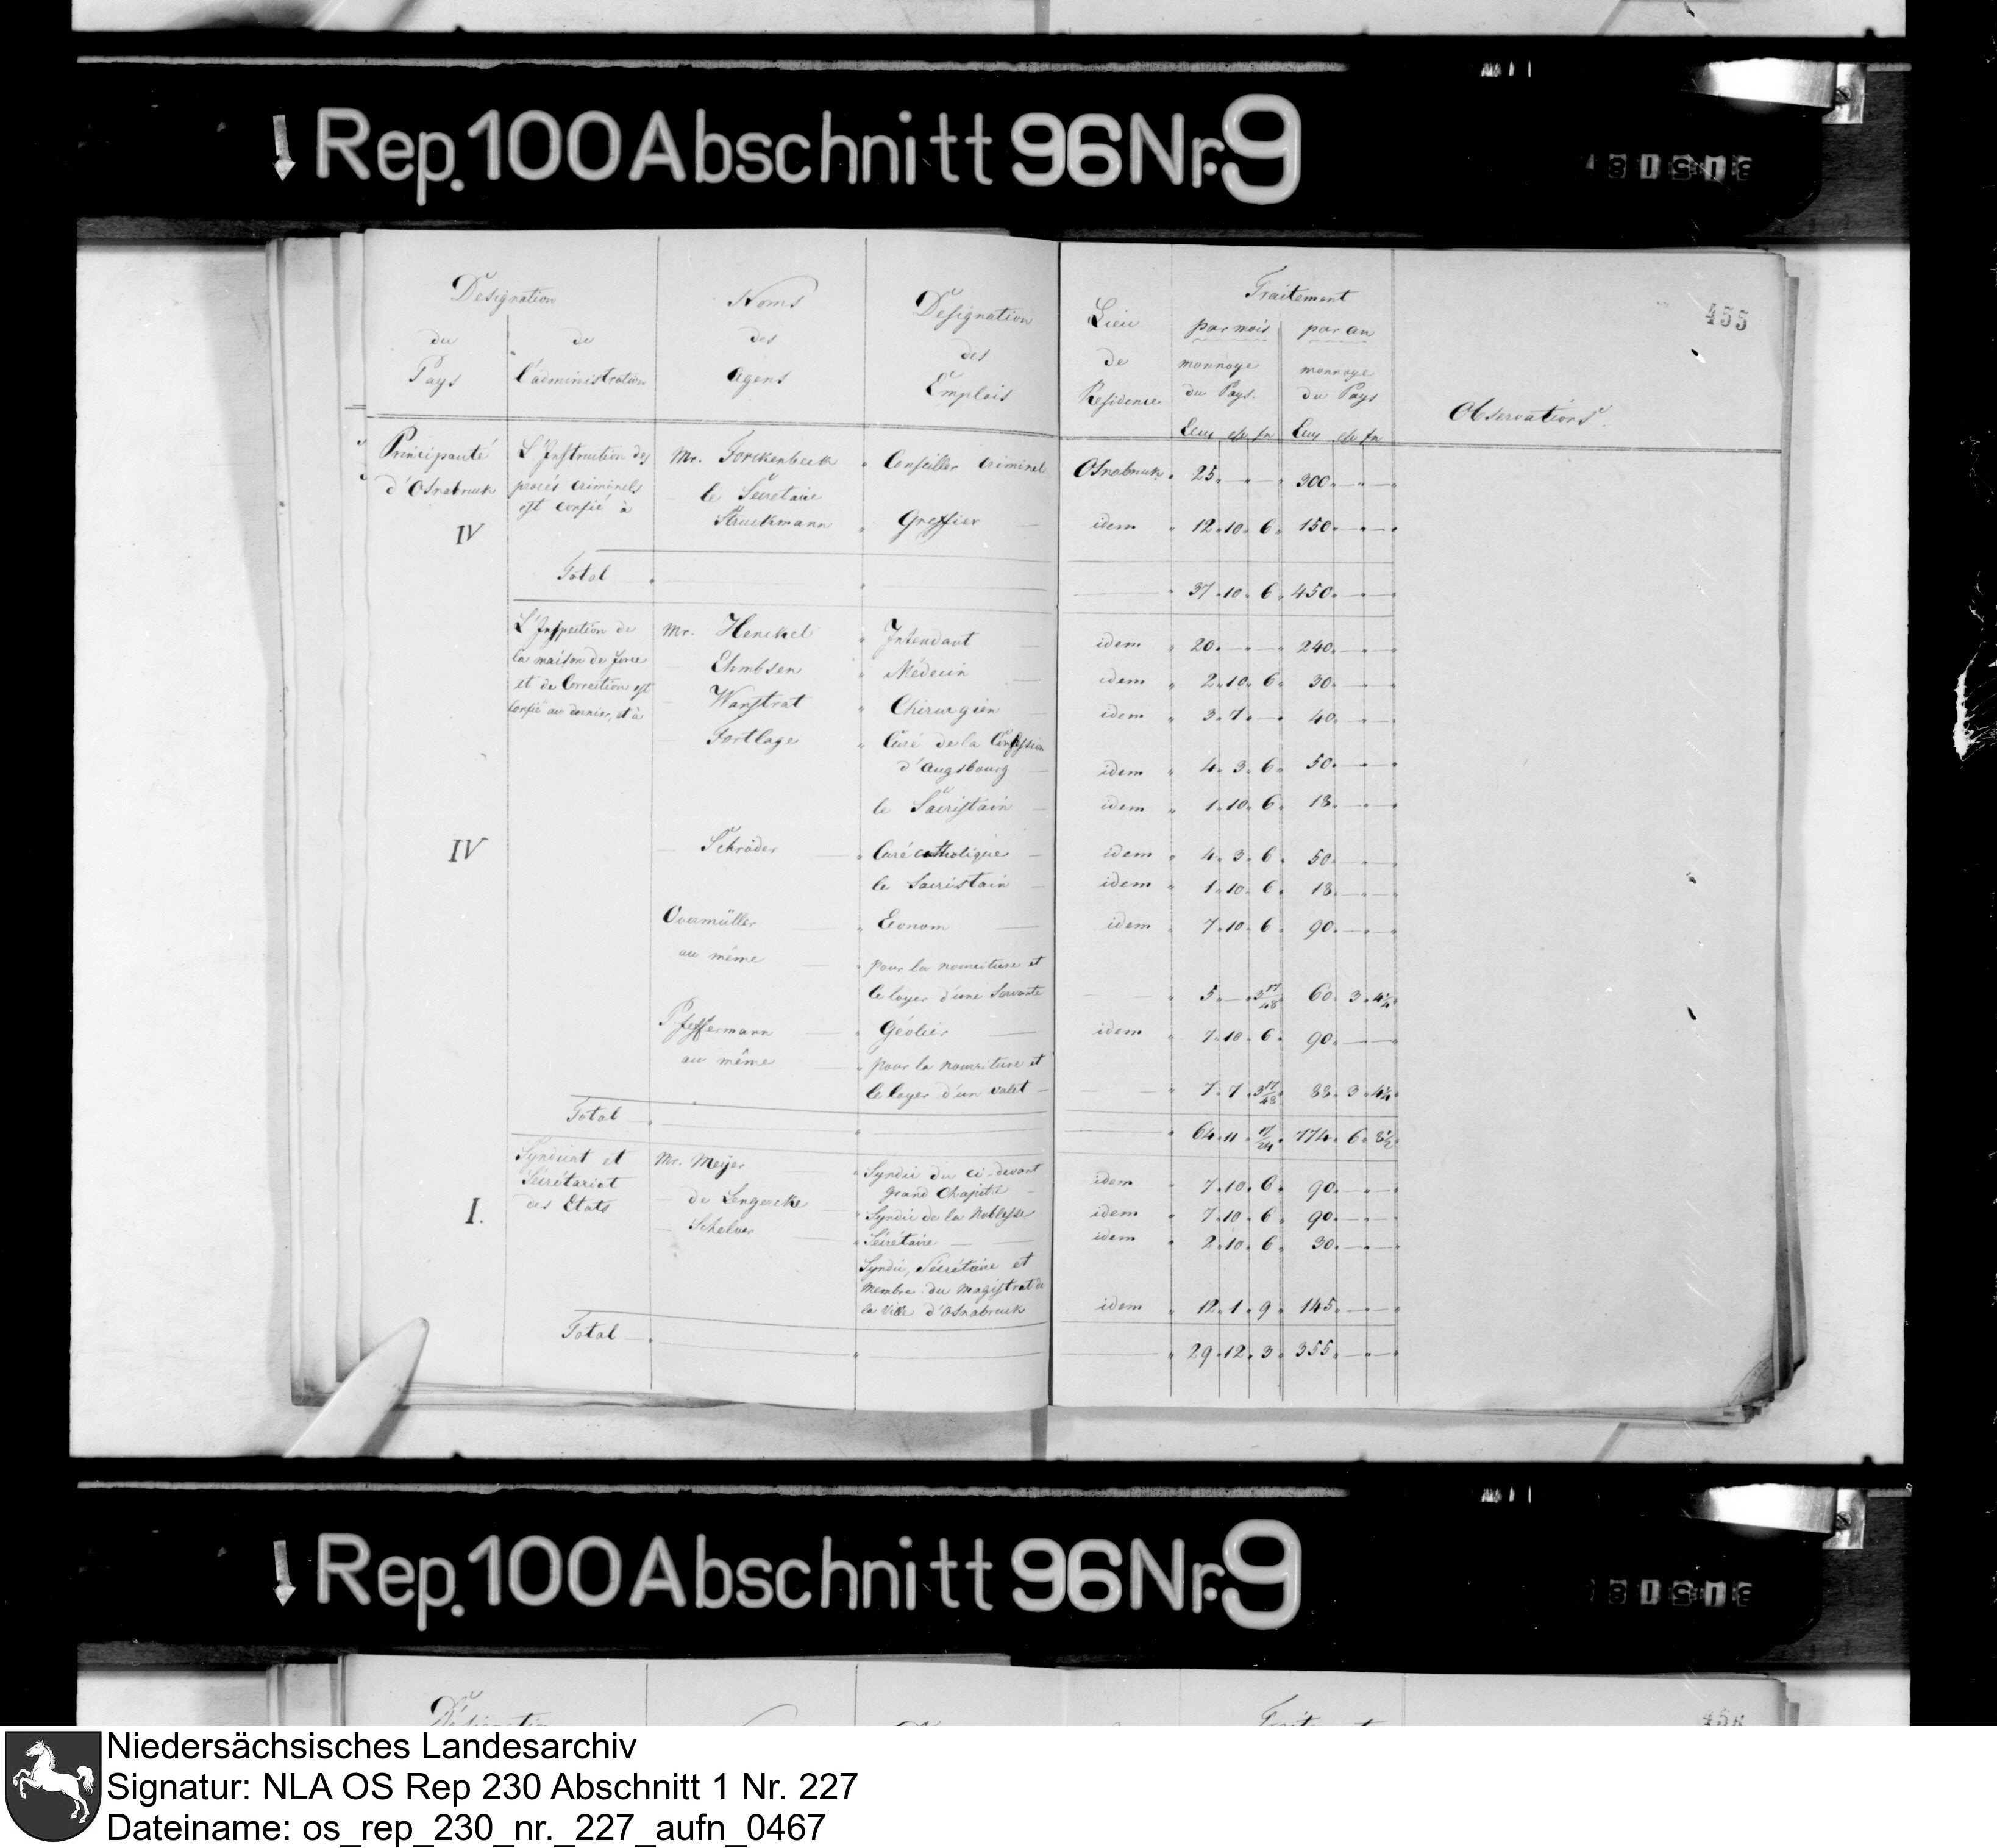 Rep. 100 Abschnitt 96 Nr. 9
455
Designation
Noms
Designation
Lieu
Traitement
du
de
des
des
de
par mois
par an
Pays
l'administration
Agens
Emplois
Residence
monnoye
du Pays.
monnoye
du Pays
Observations.
Ecus
Ecus
Principauté
d'Osnabruck
L'Instruction des
procés criminels
est confié à
Mr. Forckenbeck " Conseiller criminel Osnabruck " 25 " — " — " 300 " — " — "
le Secretaire
Struckmann " Greffier — idem " 12 " 10 " 6 " 150 " — " — "
IV
Total " — " — — " 37 " 10 " 6 " 450 " — " — "
L'Inspection de
la maison de force
et de Correction est
confié au dernier, et à
Mr. Henckel " Intendant idem " 20 " — " — " 240 " — " — "
— Ehmbsen " Médecin — idem " 2 " 10 " 6 " 30 " — " — "
— Wanstrat " Chirurgien — idem " 3 " 7 " — " 40 " — " — "
— Fortlage " Curé de la Confession
d'Augsbourg — idem " 4 " 3 " 6 " 50 " — " — "
le Sacristain — idem " 1 " 10 " 6 " 18 " — " — "
IV
— Schröder — " Curé catholique — idem " 4 " 3 " 6 " 50 " — " — "
le Sacristain — idem " 1 " 10 " 6 " 18 " — " — "
Overmüller — " Econom — idem " 7 " 10 " 6 " 90 " — " — "
au même — " pour la nourriture et
le loyer d'une Servante — — " 5 " — " 3 17/48 " 60 " 3 " 4 1/4 "
Pfeffermann — " Géolier — idem " 7 " 10 " 6 " 90 " — " — "
au même — " pour la nourriture et
le loyer d'un valet — — — " 7 " 7 " 3 17/48 " 88 " 3 " 4 1/4 "
Total " — " — — " 64 " 11 " 17/24 " 774 " 6 " 8 1/2 "
Syndicat et
Sécrétariat
des Etats
I.
Mr. Meyer " Syndic du ci-devant
grand Chapitre — idem " 7 " 10 " 6 " 90 " — " — "
— de Lengercke — " Syndic de la Noblesse idem " 7 " 10 " 6 " 90 " — " — "
— Schelver — " Sécrétaire — idem " 2 " 10 " 6 " 30 " — " — "
Syndic, Sécrétaire et
membre du magistrat de
la Ville d'Osnabruck idem " 12 " 1 " 9 " 145 " — " — "
Total — " — " — — " 29 " 12 " 3 " 355 " — " — "
Rep. 100 Abschnitt 96 Nr. 9
Niedersächsisches Landesarchiv
Signatur: NLA OS Rep 230 Abschnitt 1 Nr. 227
Dateiname: os_rep_230_nr._227_aufn_0467